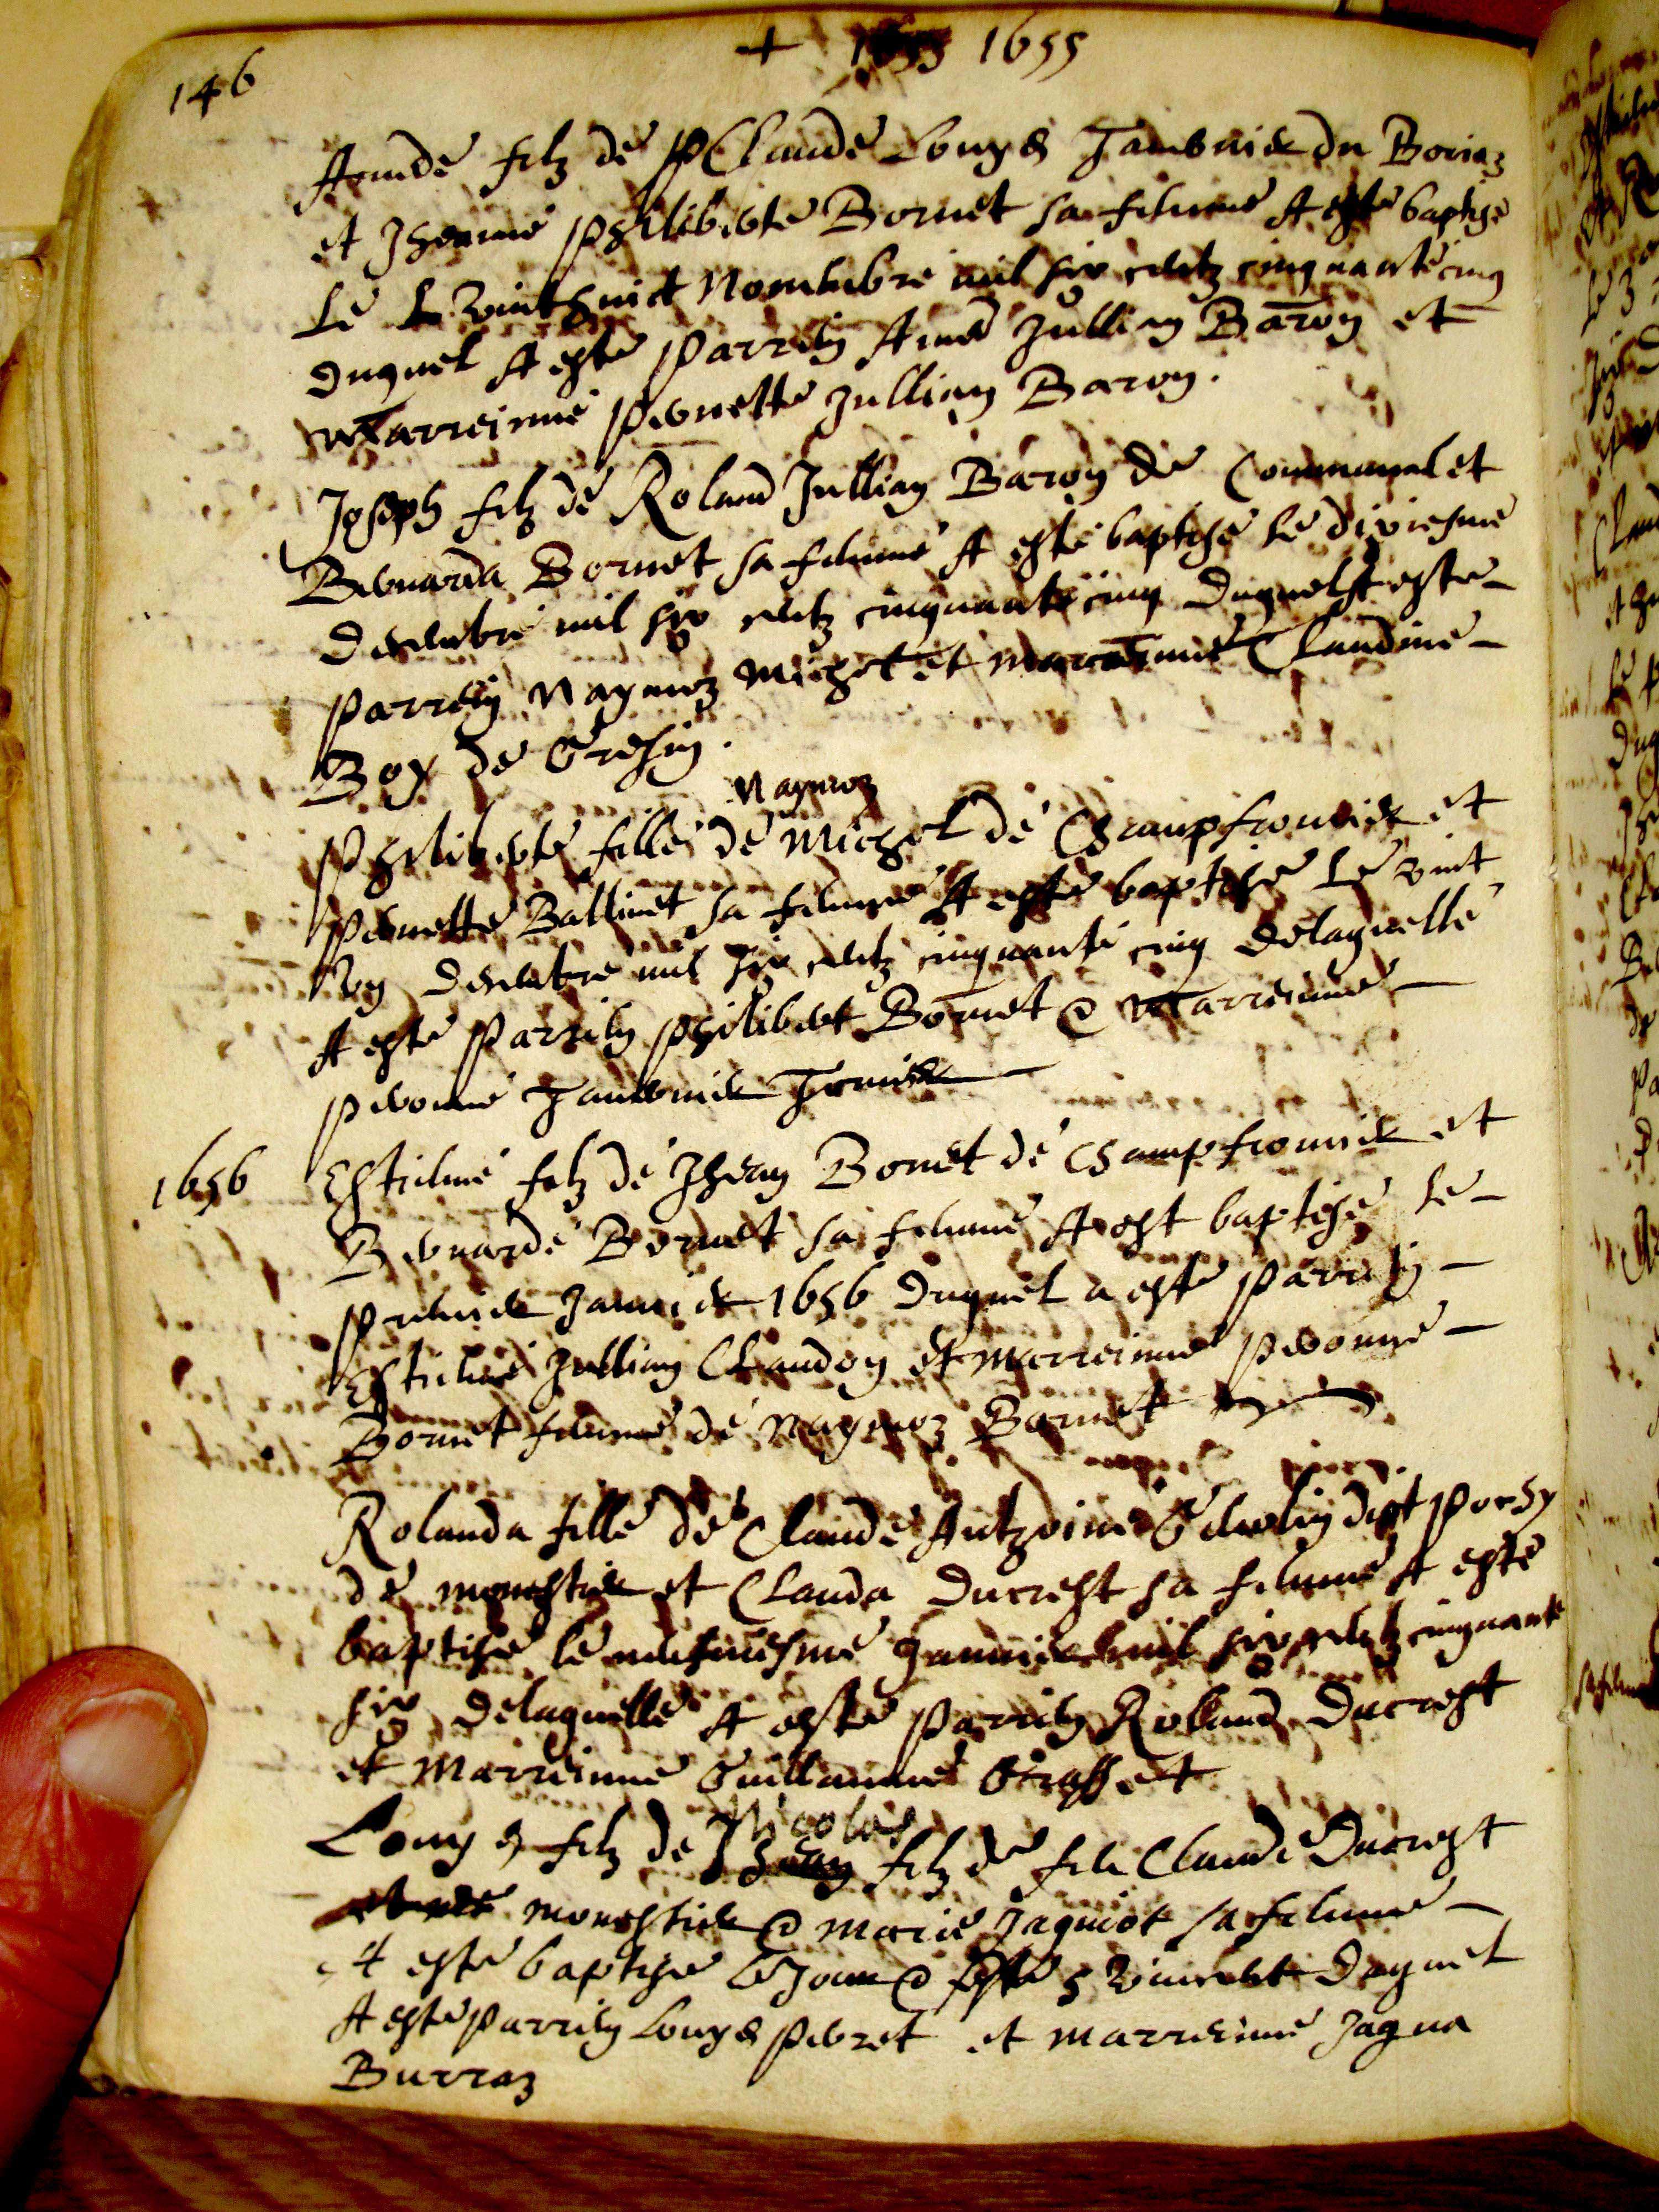 146
+ 1655
Aymde filz de Claude Louys Tavernier du Boriaz
et Jheanne Philiberte Bornet sa femme A este baptise
Le vint huict Novembre mil six centz cinquante cinq
duquel A este Parrein Amed Jullian Baron et
Marreinne Pernette Jullian Baron.
Joseph filz de Roland Jullian Baron de Communal et
Bernarda Bornet sa femme A esté baptisé le dixiesme
Decembre mil six centz cinquante cinq Duquel A este
Parrein Naymoz Michel et marreinne Claudine
Boy de Gresin.
Naymoz
Philiberte fille de Michel de Champfromier et
Pernette Ballivet sa femme A este baptisé Le vint
Decembre mil six centz cinquante cinq Delaquelle
A este Parrein Philibert Bornet & Marreinne
Pernonne Tavernier
1656
Estienne filz de Jhean Bornet de Champfromier et
Bernarde Bornet sa femme A est baptisé Le
Premier Janvier 1656 Duquel a esté Parrein
Estienne Jullian Claudon et Marreinne Pernonne
Bornet femme de Naymoz Bornet
Rolanda fille de Claude Anthoine dict
de monestier et Clauda Ducrest sa femme A esté
baptisé le neufviesme Janvier mil six centz cinquante
six Delaquelle A esté Parrein Rolland Ducrest
et Marreinne Guillauma Grosset
Nicolas
Louys filz de Jhean filz de feu Claude Ducrest
monestier & Marie Jaquiot sa femme
A esté baptisé le Jour & feste S Vincent Duquel
A esté Parrein Louys Perret et Marreinne Jaqua
Burraz